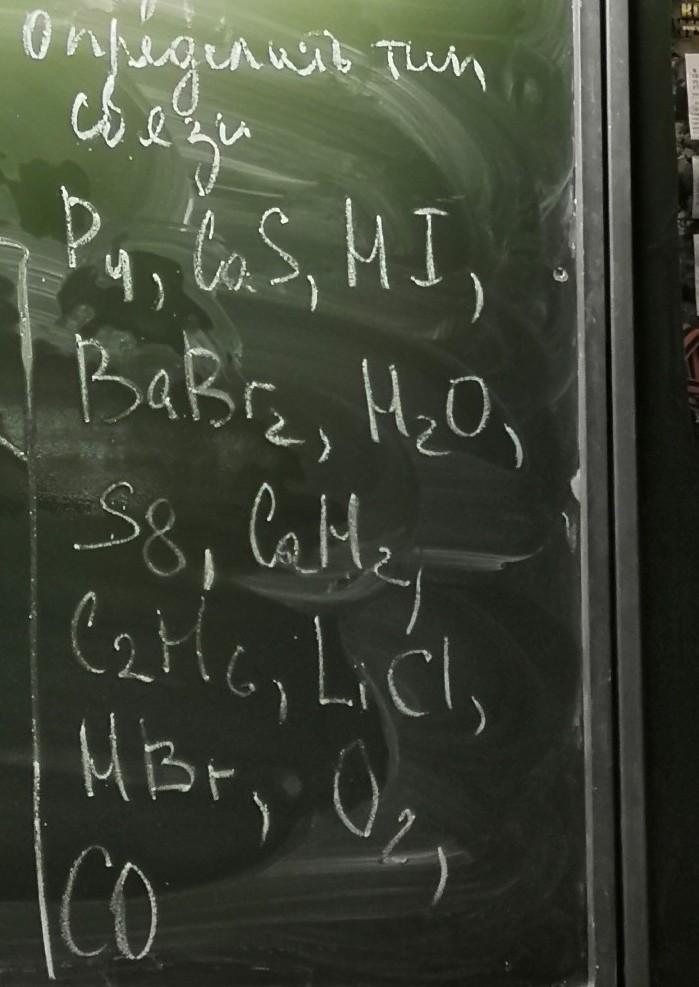 Определить тип
связи
P4, CaS, HI,
BaBr2, H2O,
S8, CaH2,
C2H6, LiCl,
HBr, O2,
CO